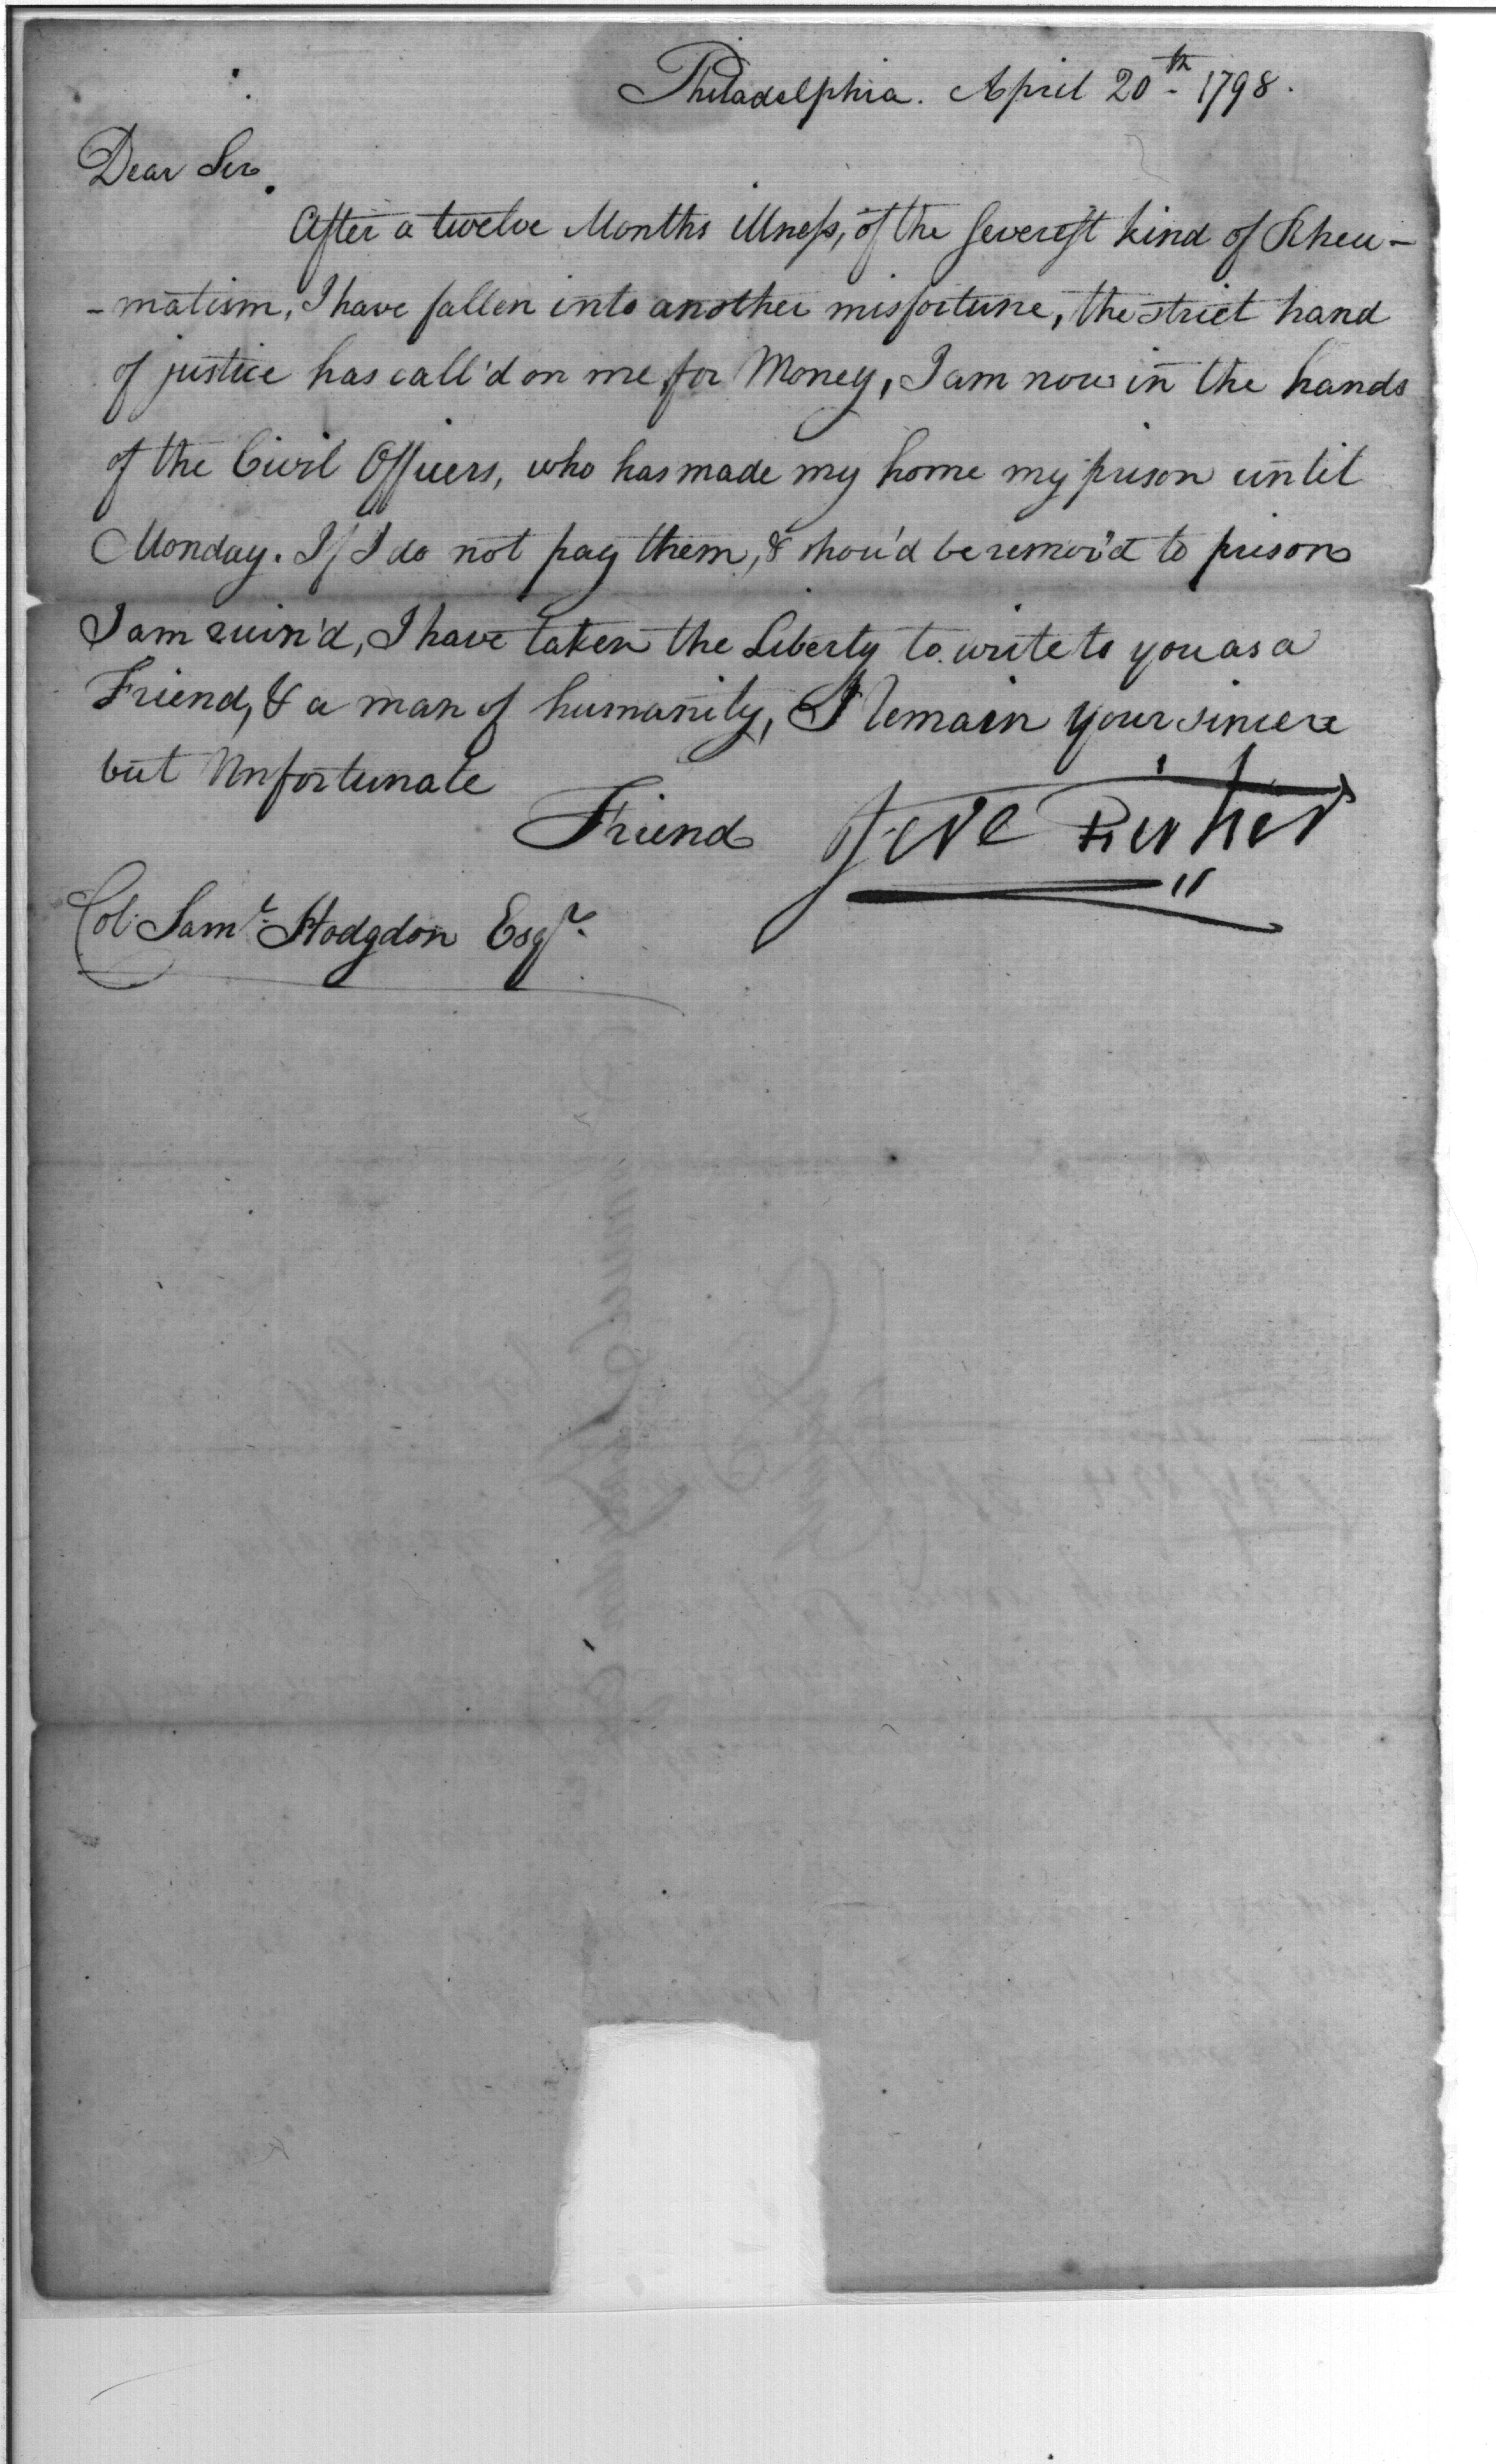 Philadelphia. April 20th 1798.
Dear Sir.
After a twelve Months illness, of the severest kind of Rheu-
-matism, I have fallen into another misfortune, the strict hand
of justice has call'd on me for Money, I am now in the hands
of the Civil Officers, who has made my home my prison until
Monday. If I do not pay them, & shou'd be remov'd to prison
I am ruin'd, I have taken the Liberty to write to you as a
Friend, & a man of humanity, I Remain your sincere
but Unfortunate
Friend Jere Fisher
Col. Saml. Hodgdon Esqr.